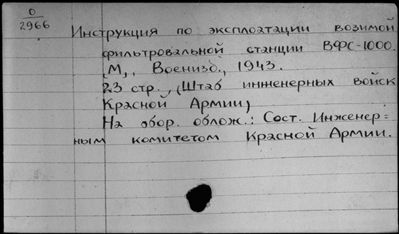 0
2966
Инструкция по эксплоатации возимой
фильтровальной станции ВФС-1000.
М., Воениздо., 1943.
23 стр., (Штаб инженерных войск
Красной Армии)
На обор. облож.: Сост. Инженер=
ным комитетом Красной Армии.